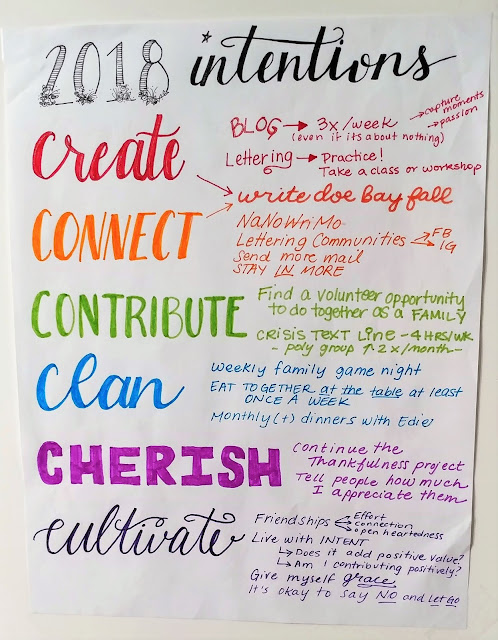 2018 intentions
create
BLOG → 3x/week → capture moments
→ passion
(even if its about nothing)
Lettering → Practice!
Take a class or workshop
write doe bay fall
CONNECT
NaNoWriMo
Lettering Communities → FB
→ IG
Send more mail
STAY IN MORE
CONTRIBUTE
Find a volunteer opportunity
to do together as a FAMILY
CRISIS TEXT LINE - 4 HRS/WK
- poly group ↑ 2x/month -
clan
Weekly family game night
EAT TOGETHER at the table at least
ONCE A WEEK
Monthly (+) dinners with Edie
CHERISH
Continue the
Thankfulness project
Tell people how much
I appreciate them
cultivate
Friendships Effort
connection
open heartedness
Live with INTENT
↳ Does it add positive value?
↳ Am I contributing positively?
Give myself grace
It's okay to say NO and Let Go